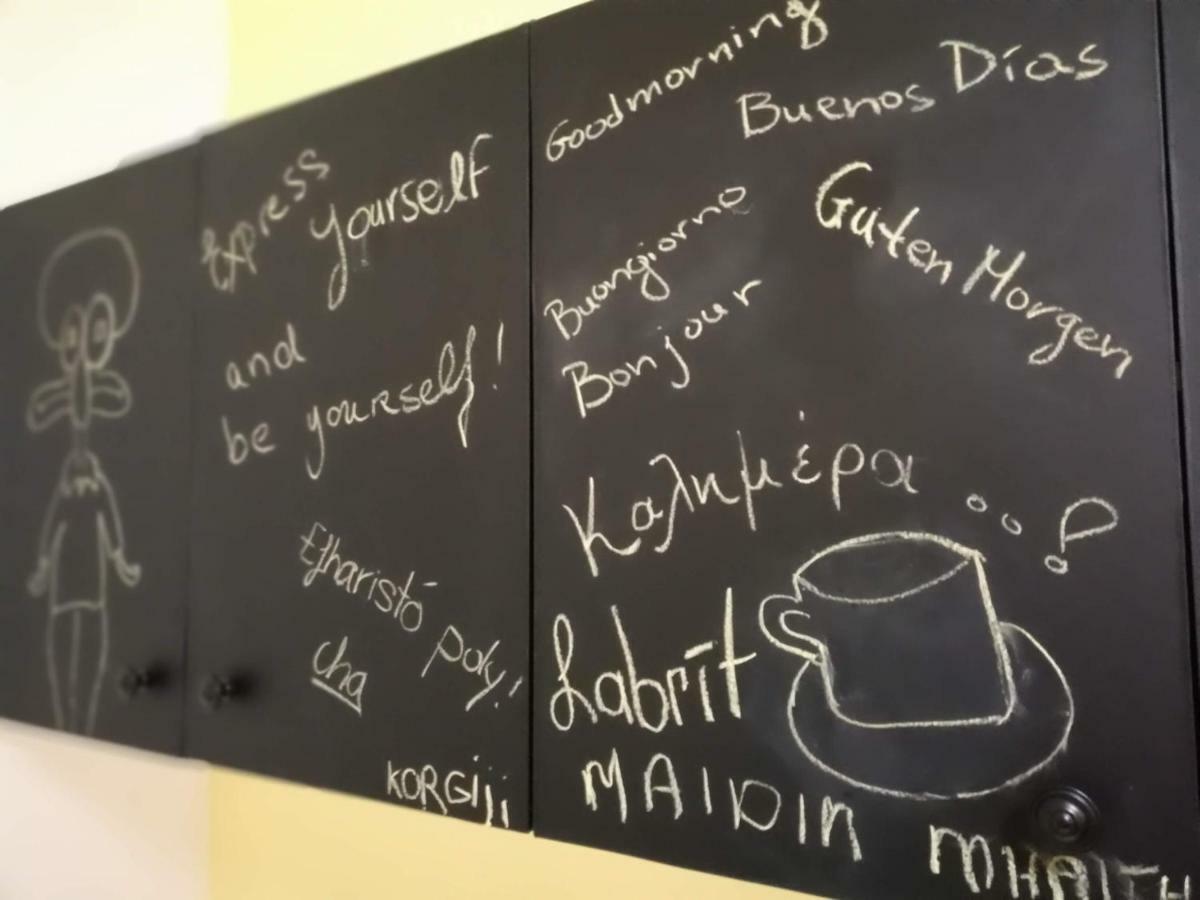 Express yourself
and
be yourself!
Efharistó poly!
cha
KORGIjj
Goodmorning
Buenos Días
Buongiorno
Guten Morgen
Bonjour
Καλημέρα ..?
Labrīt
MAIDIN MHAITH